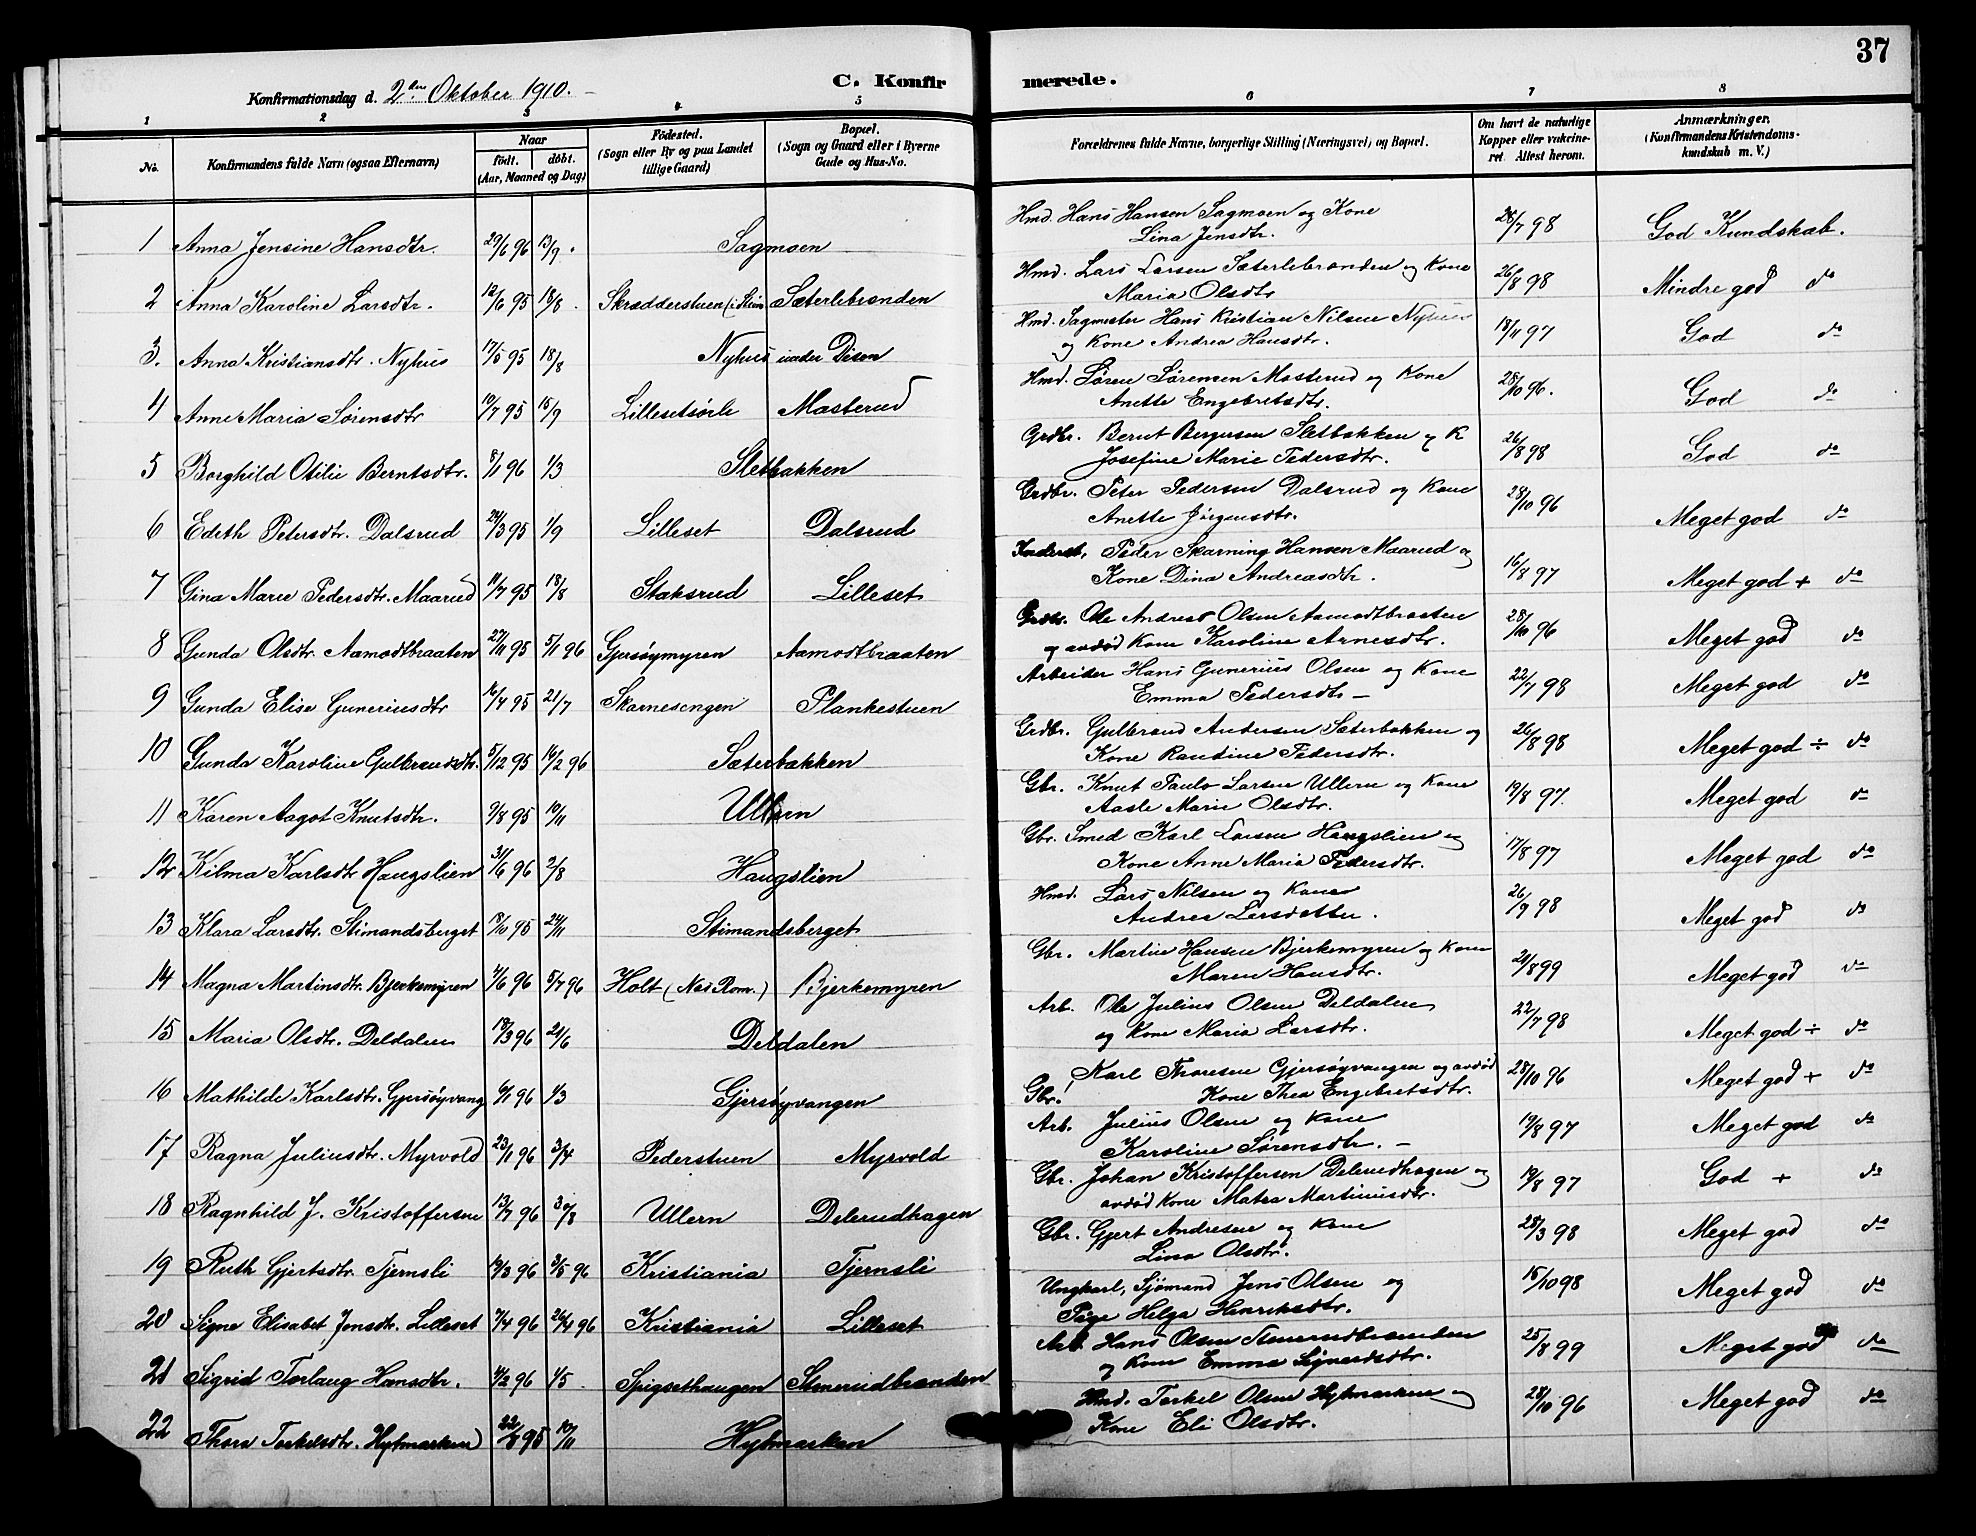 37
Konfirmationsdag d. 2den Oktober 1910. –
C. Konfirmerede.
1 2 3 4 5 6 7 8
No. Konfirmandens fulde Navn (ogsaa Efternavn) Naar født. døbt. (Aar, Maaned og Dag) Fødested. (Sogn eller By og paa Landet tillige Gaard) Bopæl. (Sogn og Gaard eller i Byerne Gade og Hus-No. Forældrenes fulde Navne, borgerlige Stilling (Næringsvei) og Bopæl. Om havt de naturlige Kopper eller vakcineret. Attest herom. Anmærkninger. (Konfirmandens Kristendomskundskab m. V.)
1 Anna Jensine Hansdtr. 29/6 96 13/9 Sagmoen Hmd. Hans Hansen Sagmoen og Kone
Lina Jensdtr. /7 98 God Kundskab.
2 Anna Karoline Larsdtr. 12/6 95 18/8 Skrædderstuen Sæterlebrænden Hmd. Lars Larsen Sæterlebrænden og Kone
Maria Olsdtr 26/8 98 Mindre god do
3. Anna Kristiansdtr. Nyhus 17/5 95 18/8 Nyhus under Disen Hmd. Sagmester Hans Kristian Nilsen Nyhus
og Kone Andrea Hansdtr. 18/11 97 God do
4 Anne Maria Sørensdtr 10/7 95 15/9 Masterud Hmd. Søren Sørensen Masterud og Kone
Anette Engebretsdtr. 28/10 96. God do
5 Borghild Otilie Berntsdtr. 8/1 96 1/3 Sletbakken Grdbr. Bernt Bergersen Sletbakken og K
Josefine Marie Pedersdtr. 26/8 98 God do
6 Edith Petersdtr. Dalsrud 24/3 95 1/9 Lilleset Dalsrud Grdbr. Peter Pedersen Dalsrud og Kone
Anette Jørgensdtr. 28/10 96 Meget god do
7 Gina Marie Pedersdtr. Maarud 11/7 95 18/8 Staksrud Lilleset Peder Skarning Hansen Maarud og
Kone Dina Andreasdtr. 16/8 97 Meget god + do
8 Gunda Olsdtr. Aamodtbraaten 27/11 95 5/1 96 Gjersøymyren Aamodtbraaten Grdbr. Ole Andreas Olsen Aamodtbraaten
og avdød Kone Karoline Arnesdtr. 28/10 96 Meget god do
9 Gunda Elise Guneriusdtr 16/4 95 21/7 Skarnesengen Plankestuen Arbeider Hans Gunerius Olsen og Kone
Emma Pedersdtr – 22/7 98 Meget god do
10 Gunda Karoline Gulbrandsdtr. 5/12 95 16/2 96 Sæterbakken Grdbr. Gulbrand Andersen Sæterbakken og
Kone Randine Pedersdtr. 26/8 98 Meget god ÷ do
11 Karen Aagot Knutsdtr. 9/8 95 10/11 Ullern Gbr. Knut Paulo Larsen Ullern og Kone
Aasle Marie Olsdtr. 19/8 97. Meget god do
12 Kilma Karlsdtr Haugslien 31/5 96 2/8 Haugslien Gbr. Smed Karl Larsen Haugslien og
Kone Anne Maria Pedersdtr. 17/8 97 Meget god do
13 Klara Larsdtr. Stimandsberget 18/10 95 24/11 Stimandsberget Hmd. Lars Nilsen og Kone
Andrea Larsdatter. 26/7 98 Meget god do
14 Magna Martinsdtr. Bjerkemyren 4/6 96 5/7 96 Holt (Nes Rom.) Bjerkemyren Gbr. Martin Hansen Bjerkemyren og Kone
Maren Hansdtr. 21/8 99 Meget god do
15 Maria Olsdtr. Deldalen 18/3 96 21/6 Deldalen Arb. Ole Julius Olsen Deldalen
og Kone Maria Larsdtr. 22/7 98 Meget god ÷ do
16 Mathilde Karlsdtr. Gjersøyvang 6/1 96 1/3 Gjersøyvangen Gbr. Karl Thoresen Gjersøyvangen og avdød
Kone Thea Engebretsdtr. 28/10 96 Meget god + do
17 Ragna Juliusdtr. Myrvold 23/1 96 3/4 Pederstuen Myrvold Arb. Julius Olsen og Kone
Karoline Sørensdtr. – 19/8 97 Meget god do
18 Ragnhild J. Kristoffersen 13/7 96 30/8 Ullern Delerudhagen Gbr. Johan Kristoffersen Delerudhagen og
avdød Kone Matea Martinusdtr. 19/8 97 God + do
19 Ruth Gjertsdtr. Tjernsli 19/3 96 3/5 96 Kristiania Tjernsli Gbr. Gjert Andresen og Kone
Lina Olsdtr. 28/3 98 Meget god do
20 Signe Elisabet Jensdtr. Lilleset 7/4 96 26/4 96 Kristiania Lilleset Ungkarl, Sjømand Jens Olsen og
Pige Helga Henriksdtr. 15/10 98 Meget god do
21 Sigrid Torlaug Hansdtr. 4/2 96 1/5 Spigsethaugen Stenerudbrænden Arb. Hans Olsen Stenerudbrænden
og Kone Emma Syverdsdtr. 25/8 99 Meget god do
22 Thora Torkelsdtr. Hytmarken 22/8 95 10/11 Hytmarken Hmd. Torkel Olsen Hytmarken og
Kone Eli Olsdtr. 28/10 96 Meget god do